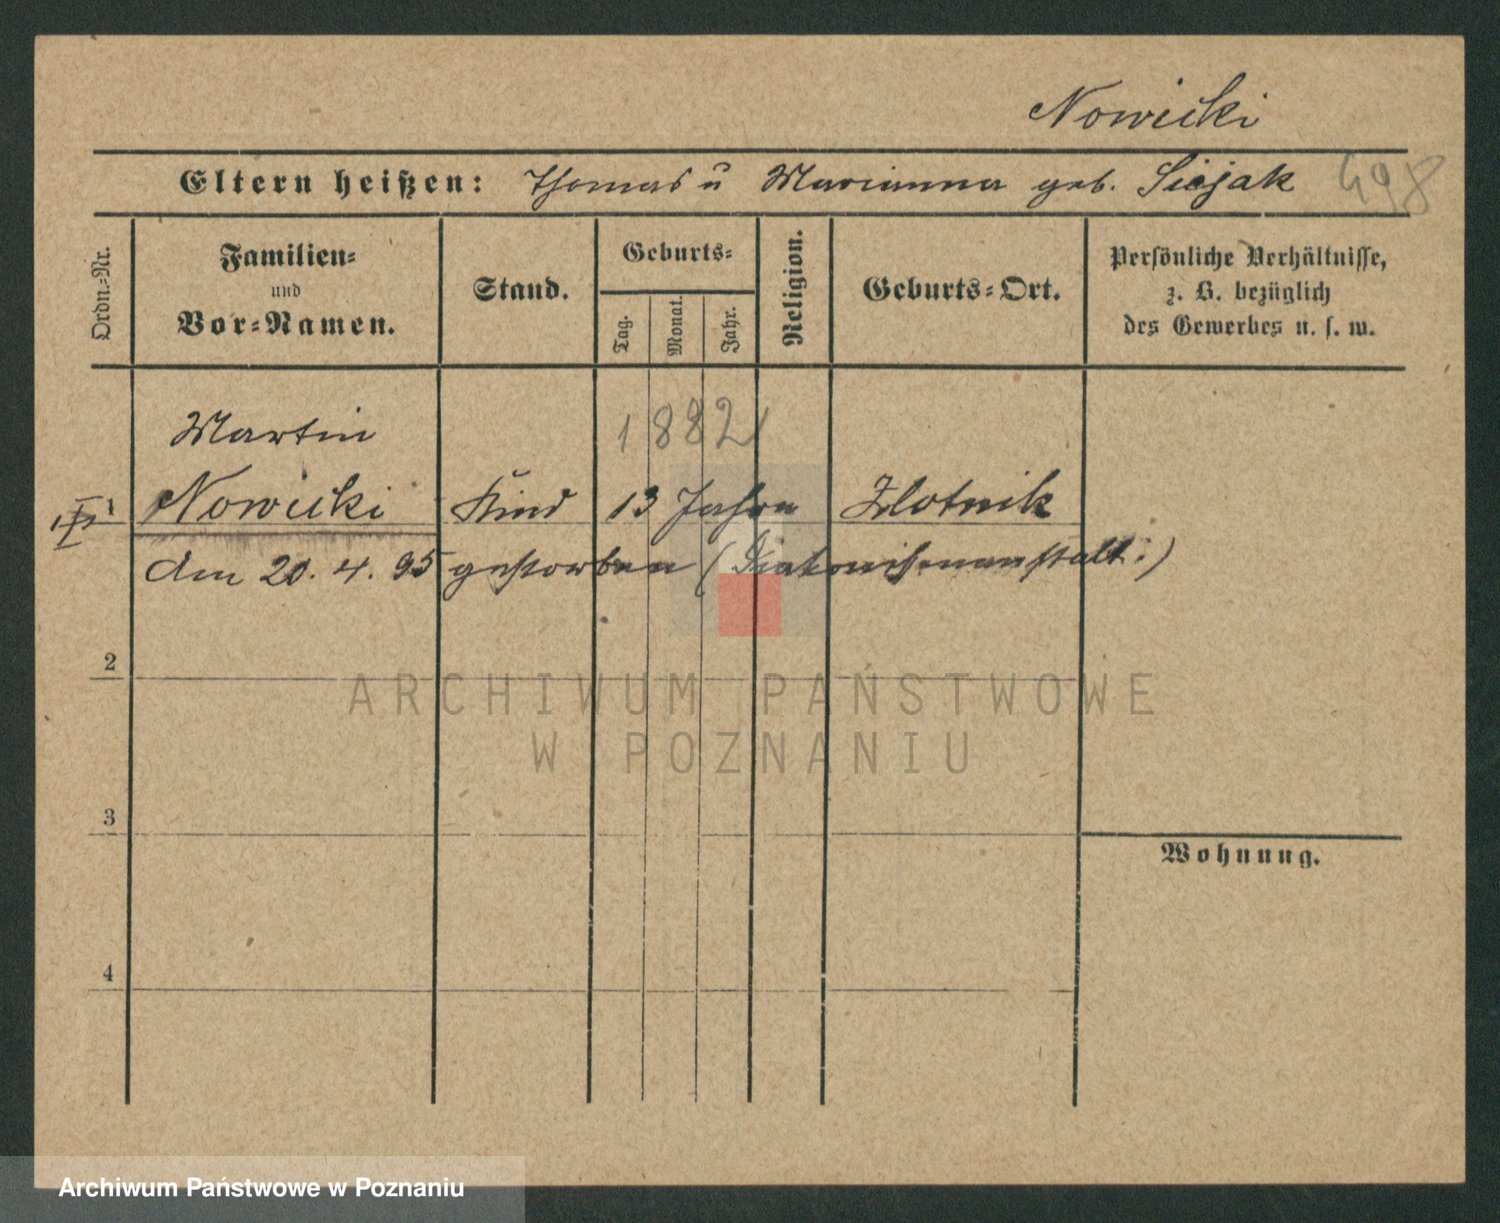 Nowicki
Eltern heißen: Thomas u Marianna geb. Sisjak 498
Ordn.-Nr.
Familien-
und
Vor-Namen.
Stand.
Geburts-
Tag.
Monat.
Jahr.
Religion.
Geburts-Ort.
Persönliche Verhältnisse,
z. B. bezüglich
des Gewerbes u. s. w.
Martin 1882
1 Nowicki Kind 13 Jahren Zlotnik
Am 20. 4. 95 gestorben (Diakonissenanstalt.)
2
ARCHIWUM PAŃSTWOWE
W POZNANIU
3
Wohnung.
4
Archiwum Państwowe w Poznaniu